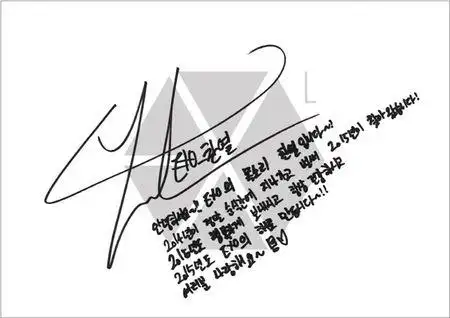 L
EXO 찬열
안녕하세요~! EXO의 찬열입니다~!
2014년이 정말 순식간에 지나가고 벌써 2015년이 찾아왔습니다!
2015년도 보내시고 항상
2015년도 EXO의 해로 만듭시다~!!
여러분 사랑해요~